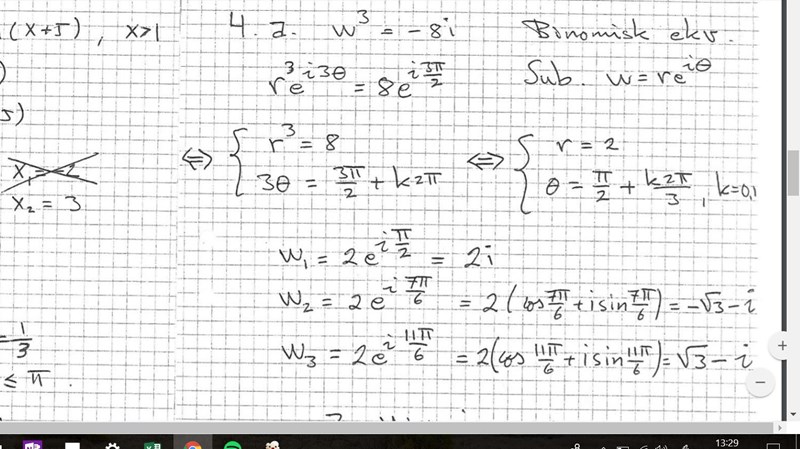 (x+5) , x>1
)
5)
x₁ = -2
x₂ = 3
= 1/3
≤ π.
4. a. w³ = -8i Binomisk ekv.
r³e^{i3θ} = 8e^{i3π/2} Sub. w = re^{iθ}
⇔ { r³ = 8 ⇔ { r = 2
3θ = 3π/2 + k2π θ = π/2 + k2π/3 , k=0,1
w₁ = 2e^{iπ/2} = 2i
w₂ = 2e^{i7π/6} = 2(cos 7π/6 + i sin 7π/6) = -√3 - i
w₃ = 2e^{i11π/6} = 2(cos 11π/6 + i sin 11π/6) = √3 - i
13:29